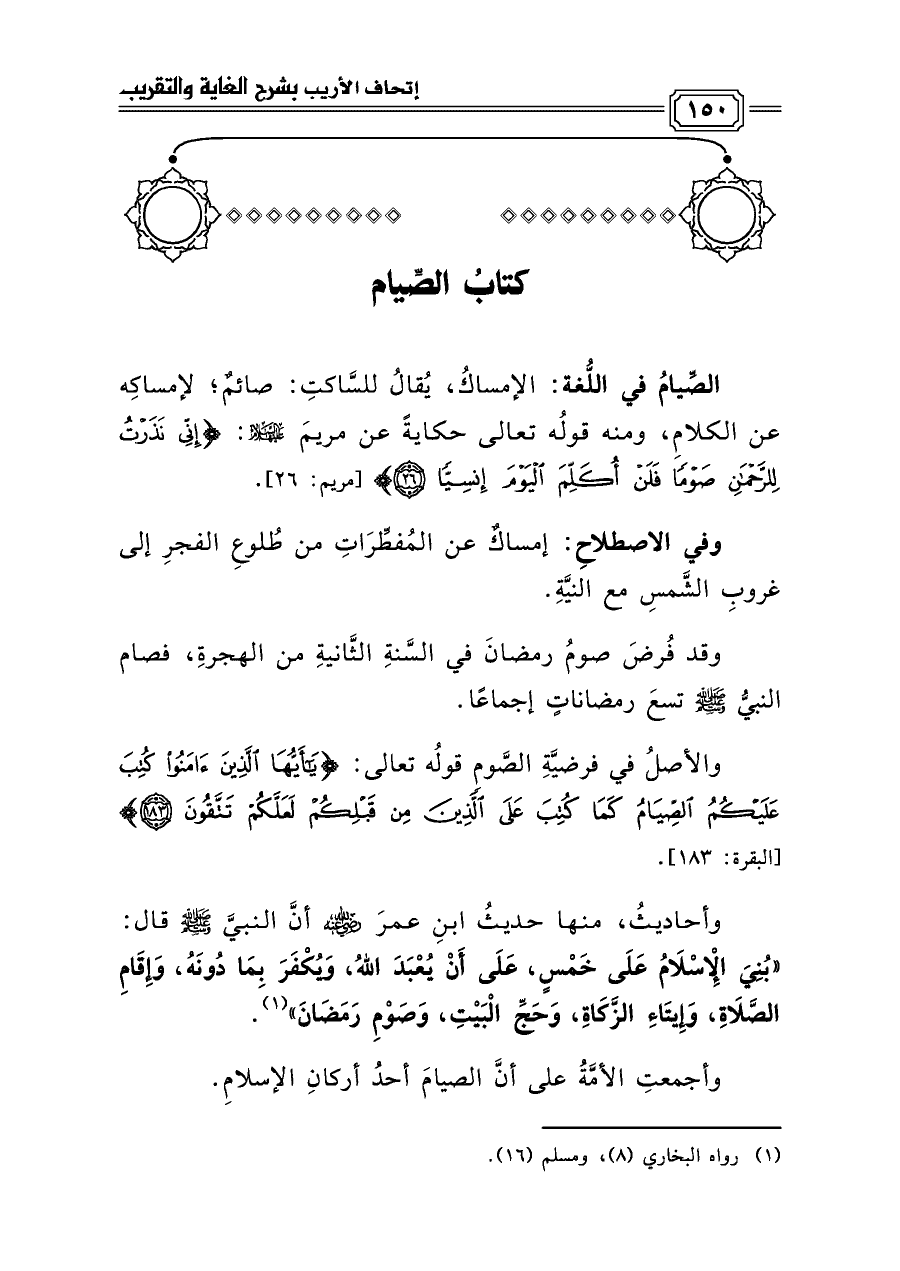 إتحاف الأريب بشرح الغاية والتقريب
١٥٠
كتابُ الصِّيام
الصِّيامُ في اللُّغة: الإمساكُ، يُقالُ للسَّاكتِ: صائمٌ؛ لإمساكِه
عن الكلامِ، ومنه قولُه تعالى حكايةً عن مريمَ عليها السلام: ﴿إِنِّي نَذَرْتُ
لِلرَّحْمَٰنِ صَوْمًا فَلَنْ أُكَلِّمَ ٱلْيَوْمَ إِنسِيًّا ٢٦﴾ [مريم: ٢٦].
وفي الاصطلاحِ: إمساكٌ عن المُفطِّرَاتِ من طُلوعِ الفجرِ إلى
غروبِ الشَّمسِ مع النيَّةِ.
وقد فُرضَ صومُ رمضانَ في السَّنةِ الثَّانيةِ من الهجرةِ، فصام
النبيُّ ﷺ تسعَ رمضاناتٍ إجماعًا.
والأصلُ في فرضيَّةِ الصَّومِ قولُه تعالى: ﴿يَٰٓأَيُّهَا ٱلَّذِينَ ءَامَنُوا۟ كُتِبَ
عَلَيْكُمُ ٱلصِّيَامُ كَمَا كُتِبَ عَلَى ٱلَّذِينَ مِن قَبْلِكُمْ لَعَلَّكُمْ تَتَّقُونَ ١٨٣﴾
[البقرة: ١٨٣].
وأحاديثُ، منها حديثُ ابنِ عمرَ رضي الله عنه أنَّ النبيَّ ﷺ قال:
«بُنِيَ الْإِسْلَامُ عَلَى خَمْسٍ، عَلَى أَنْ يُعْبَدَ اللهُ، وَيُكْفَرَ بِمَا دُونَهُ، وَإِقَامِ
الصَّلَاةِ، وَإِيتَاءِ الزَّكَاةِ، وَحَجِّ الْبَيْتِ، وَصَوْمِ رَمَضَانَ»(١).
وأجمعتِ الأمَّةُ على أنَّ الصيامَ أحدُ أركانِ الإسلامِ.
(١) رواه البخاري (٨)، ومسلم (١٦).